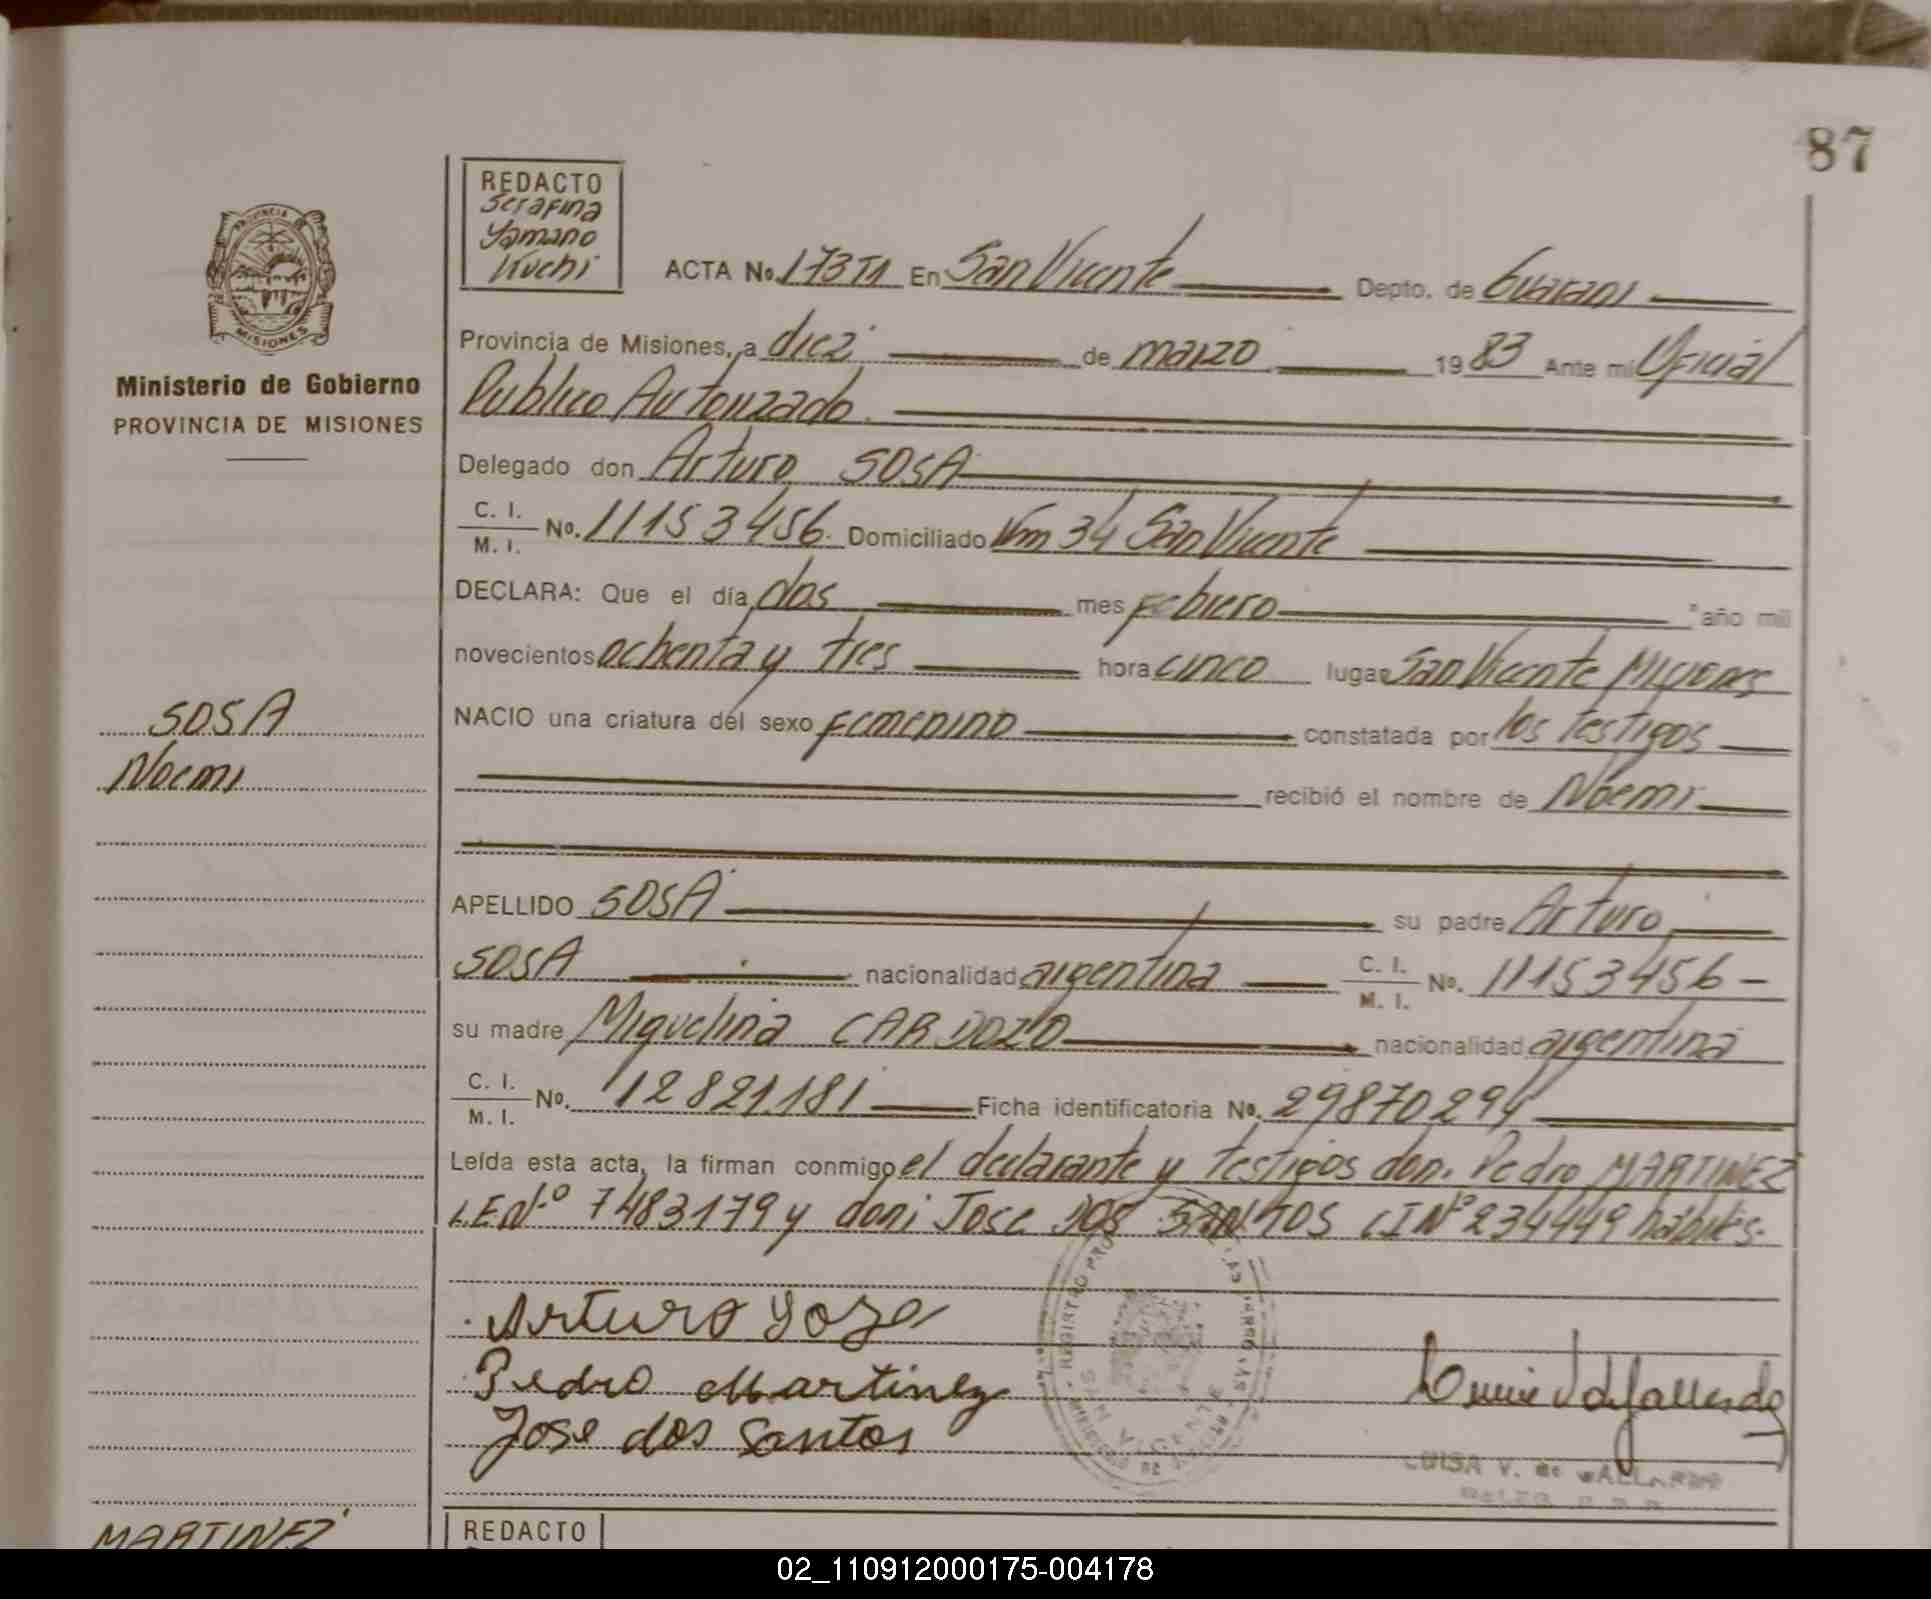 87
REDACTO
Serafina
Yamano
Kuchi
PROVINCIA
MISIONES
Ministerio de Gobierno
PROVINCIA DE MISIONES
ACTA No. 173 T1 En San Vicente Depto. de Guarani
Provincia de Misiones, a diez de marzo 1983 Ante mi Oficial
Publico Autorizado.
Delegado don Arturo SOSA
C. I. / M. I. No. 11153456. Domiciliado Km 34 San Vicente
DECLARA: Que el día dos mes febrero año mil
novecientos ochenta y tres hora cinco lugar San Vicente Misiones
NACIO una criatura del sexo femenino constatada por los testigos
recibió el nombre de Noemi
SOSA
Noemi
APELLIDO SOSA su padre Arturo
SOSA nacionalidad argentina C. I. / M. I. No. 11153456 -
su madre Miguelina CARDOZO nacionalidad argentina
C. I. / M. I. No. 12821181 Ficha identificatoria No. 29870294
Leída esta acta, la firman conmigo el declarante y testigos don. Pedro MARTINEZ
LE Nº 7483179 y don: Jose DOS SANTOS CI Nº 234449 hábiles.
Arturo Sosa
Pedro Martinez
Jose dos Santos
SAN VICENTE
LUISA V. de
MARTINEZ
REDACTO
02_110912000175-004178